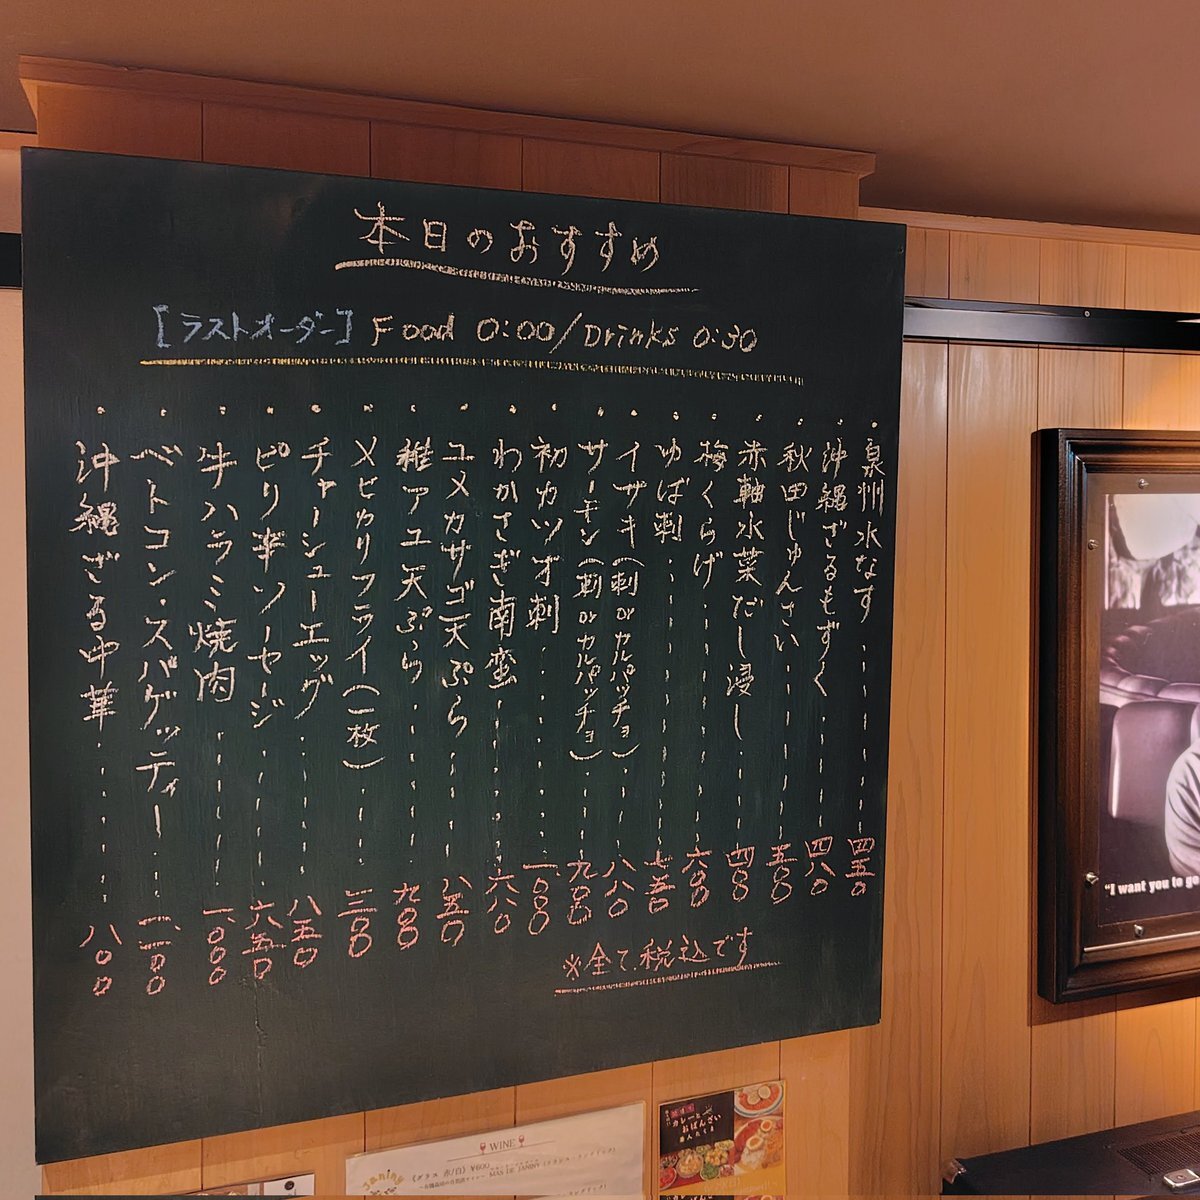 本日のおすすめ
[ラストオーダー] Food 0:00/Drinks 0:30
・泉州水なす 四五〇
・沖縄ざるもずく 四八〇
・秋田じゅんさい 五〇〇
・赤軸水菜だし浸し 四〇〇
・梅くらげ 六〇〇
・ゆば刺 七五〇
・イサキ(刺orカルパッチョ) 八八〇
・サーモン(刺orカルパッチョ) 九〇〇
・初カツオ刺 一、〇〇〇
・わかさぎ南蛮 六八〇
・ユメカサゴ天ぷら 八五〇
・稚アユ天ぷら 九〇〇
・メヒカリフライ(一枚) 三〇〇
・チャーシューエッグ 八五〇
・ピリ辛ソーセージ 六五〇
・牛ハラミ焼肉 一、〇〇〇
・ベトコン・スパゲッティー 一、一〇〇
・沖縄ざる中華 八〇〇
※全て税込です
"I want you to go
WINE
Janiny
《グラス 赤/白》¥600
MAS DE JANINY
カレーと
おばんざい